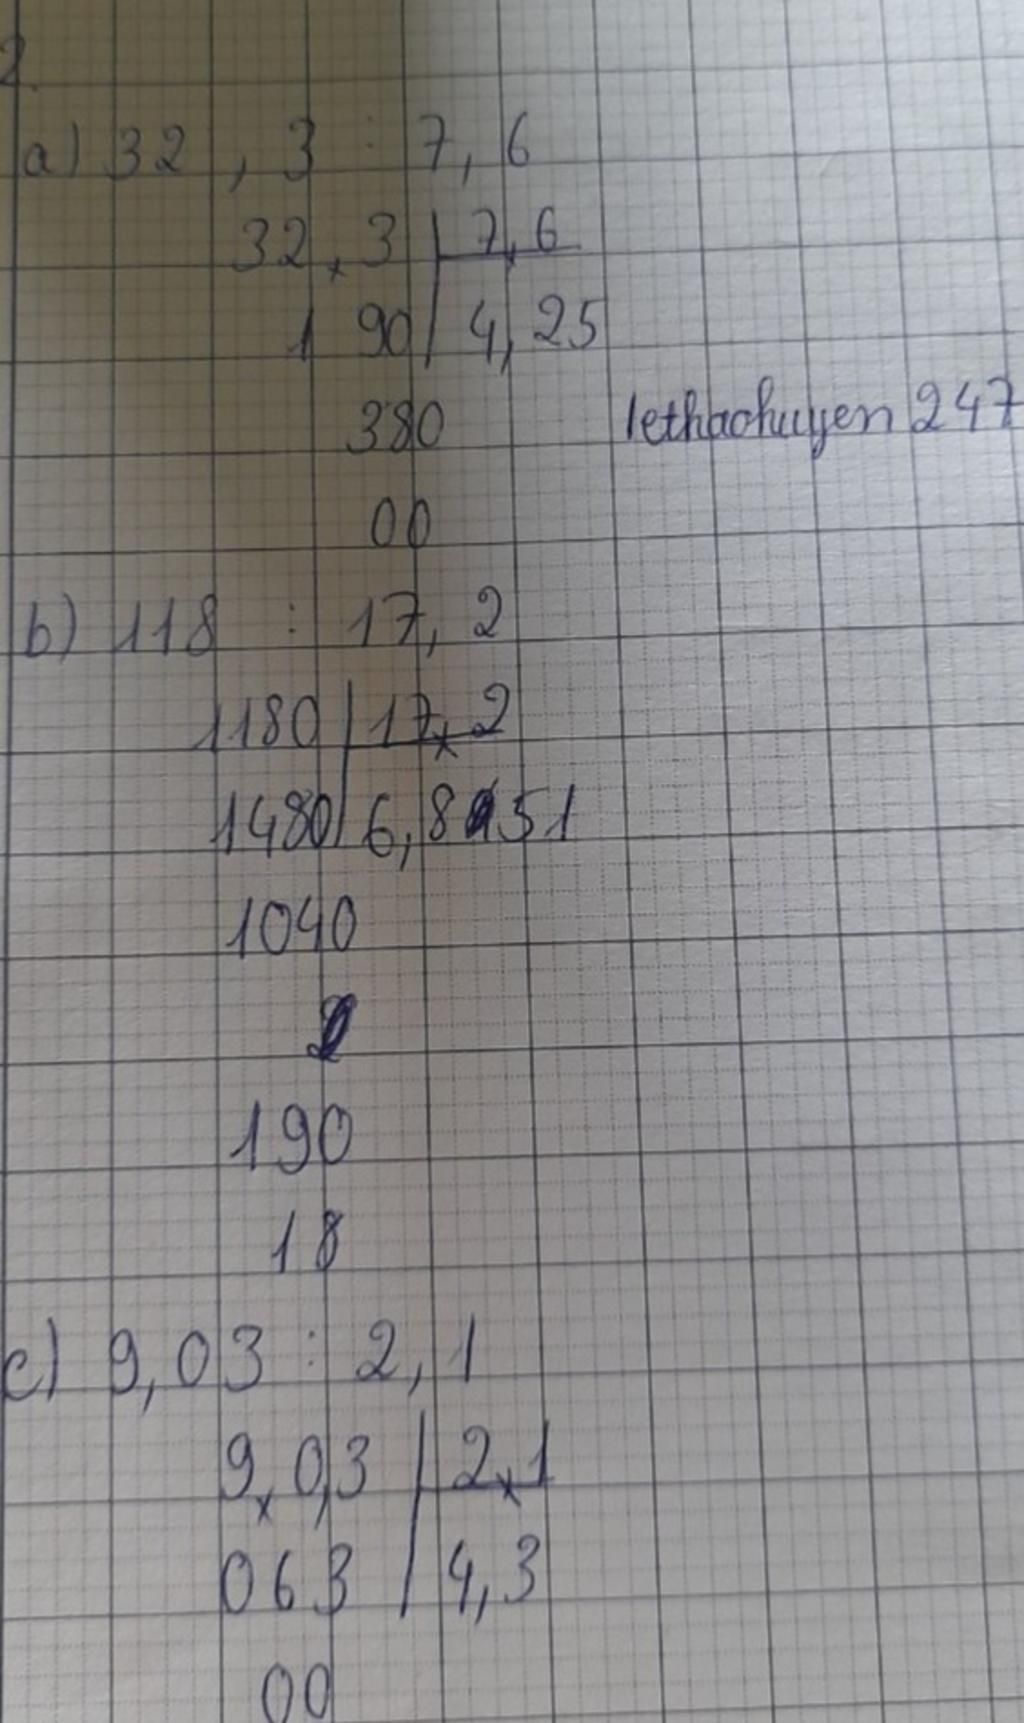 2.
a) 32,3 : 7,6
32,3 | 7,6
1 90 | 4,25
380 lethachuyen 247
00
b) 118 : 17,2
1180 | 17,2
1480 | 6,851
1040
190
18
c) 9,03 : 2,1
9,0,3 | 2,1
063 | 4,3
00